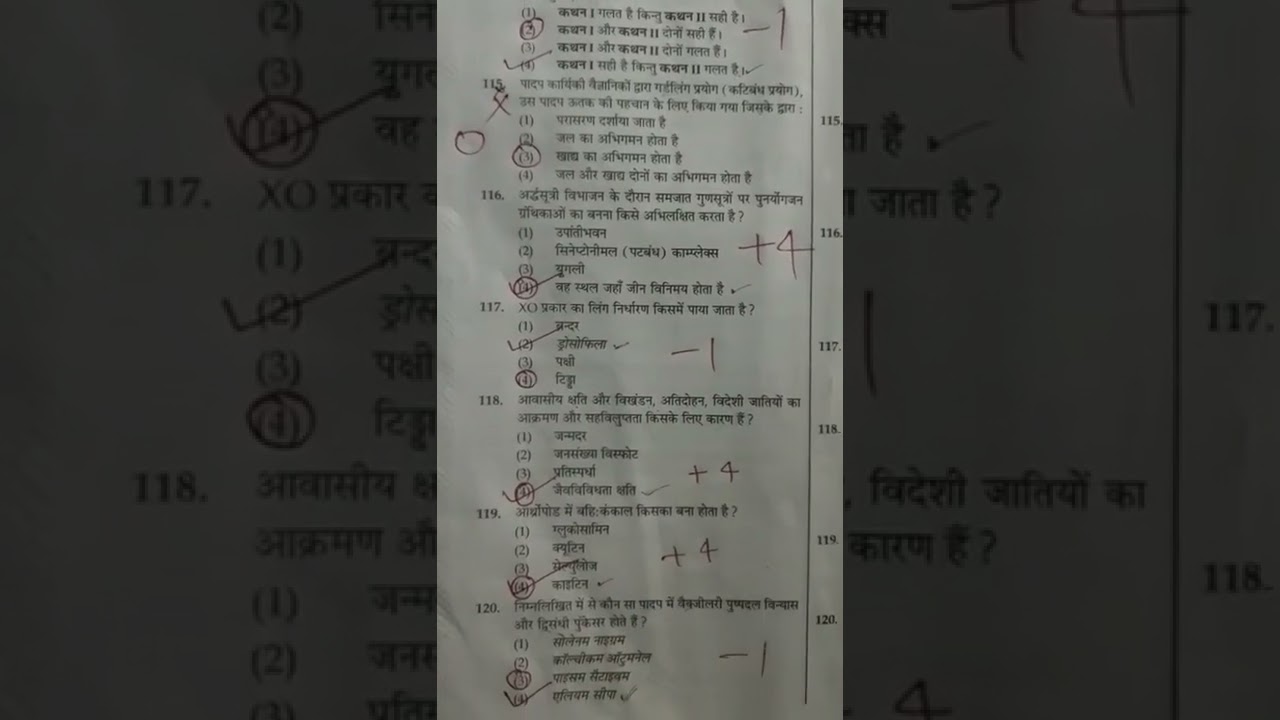 (1) कथन I गलत है किन्तु कथन II सही है।
(2) कथन I और कथन II दोनों सही हैं।
-1
(3) कथन I और कथन II दोनों गलत हैं।
(4) कथन I सही है किन्तु कथन II गलत है।
115. पादप कार्यिकी वैज्ञानिकों द्वारा गर्डलिंग प्रयोग (कटिबंध प्रयोग),
उस पादप ऊतक की पहचान के लिए किया गया जिसके द्वारा :
(1) परासरण दर्शाया जाता है
(2) जल का अभिगमन होता है
(3) खाद्य का अभिगमन होता है
(4) जल और खाद्य दोनों का अभिगमन होता है
116. अर्द्धसूत्री विभाजन के दौरान समजात गुणसूत्रों पर पुनर्योगजन
ग्रंथिकाओं का बनना किसे अभिलक्षित करता है ?
(1) उपांतीभवन
(2) सिनेप्टोनीमल (पटबंध) काम्प्लेक्स
+4
(3) युगली
(4) वह स्थल जहाँ जीन विनिमय होता है
117. XO प्रकार का लिंग निर्धारण किसमें पाया जाता है ?
(1) बन्दर
(2) ड्रोसोफिला
-1
(3) पक्षी
(4) टिड्डा
118. आवासीय क्षति और विखंडन, अतिदोहन, विदेशी जातियों का
आक्रमण और सहविलुप्तता किसके लिए कारण हैं ?
(1) जन्मदर
(2) जनसंख्या विस्फोट
(3) प्रतिस्पर्धा
+4
(4) जैवविविधता क्षति
119. आर्थ्रोपोड में बहि:कंकाल किसका बना होता है ?
(1) ग्लुकोसामिन
(2) क्यूटिन
+4
(3) सेल्युलोज
(4) काइटिन
120. निम्नलिखित में से कौन सा पादप में वैक्जीलरी पुष्पदल विन्यास
और द्विसंधी पुंकेसर होते हैं ?
(1) सोलेनम नाइग्रम
(2) कॉल्चीकम ऑटुमनेल
-1
(3) पाइसम सैटाइवम
(4) एलियम सीपा
115.
116.
117.
118.
119.
120.